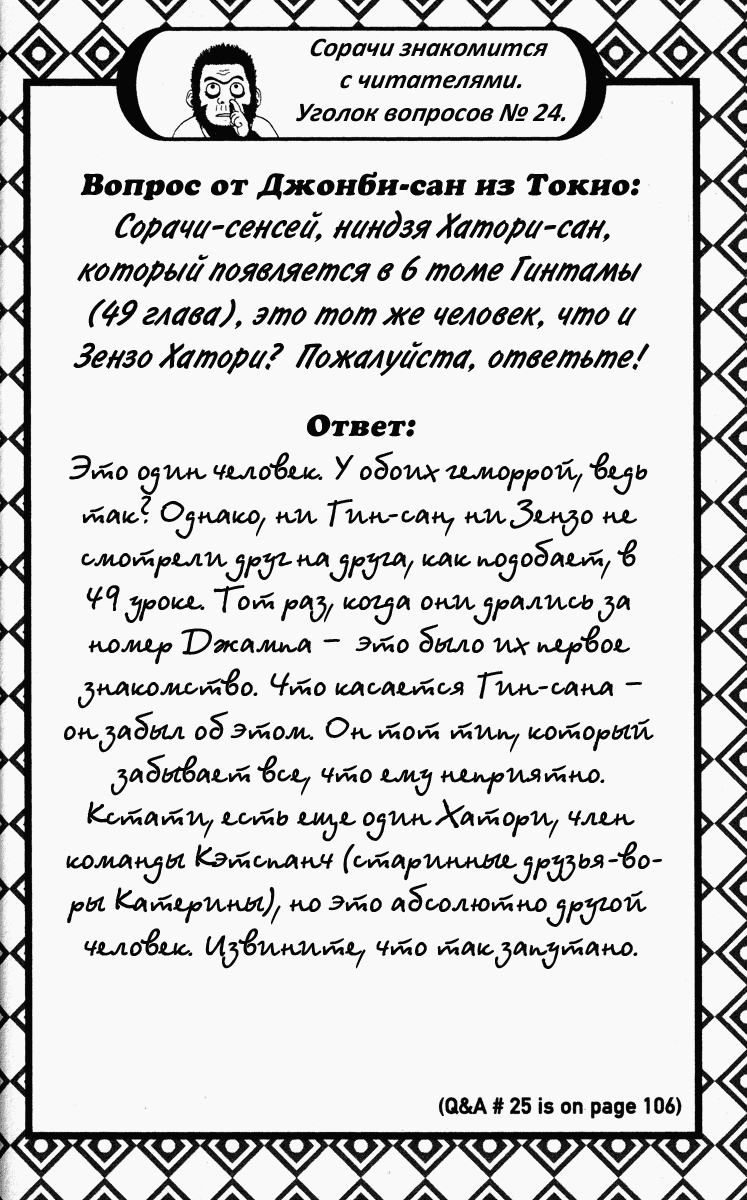 Сорачи знакомится
с читателями.
Уголок вопросов № 24.
Вопрос от Джонби-сан из Токио:
Сорачи-сенсей, ниндзя Хатори-сан,
который появляется в 6 томе Гинтамы
(49 глава), это тот же человек, что и
Зензо Хатори? Пожалуйста, ответьте!
Ответ:
Это один человек. У обоих геморрой, ведь
так? Однако, ни Гин-сан, ни Зензо не
смотрели друг на друга, как подобает, в
49 уроке. Тот раз, когда они дрались за
номер Джампа – это было их первое
знакомство. Что касается Гин-сана –
он забыл об этом. Он тот тип, который
забывает все, что ему неприятно.
Кстати, есть еще один Хатори, член
команды Кэтспанч (старинные друзья-во-
ры Катерины), но это абсолютно другой
человек. Извините, что так запутано.
(Q&A # 25 is on page 106)